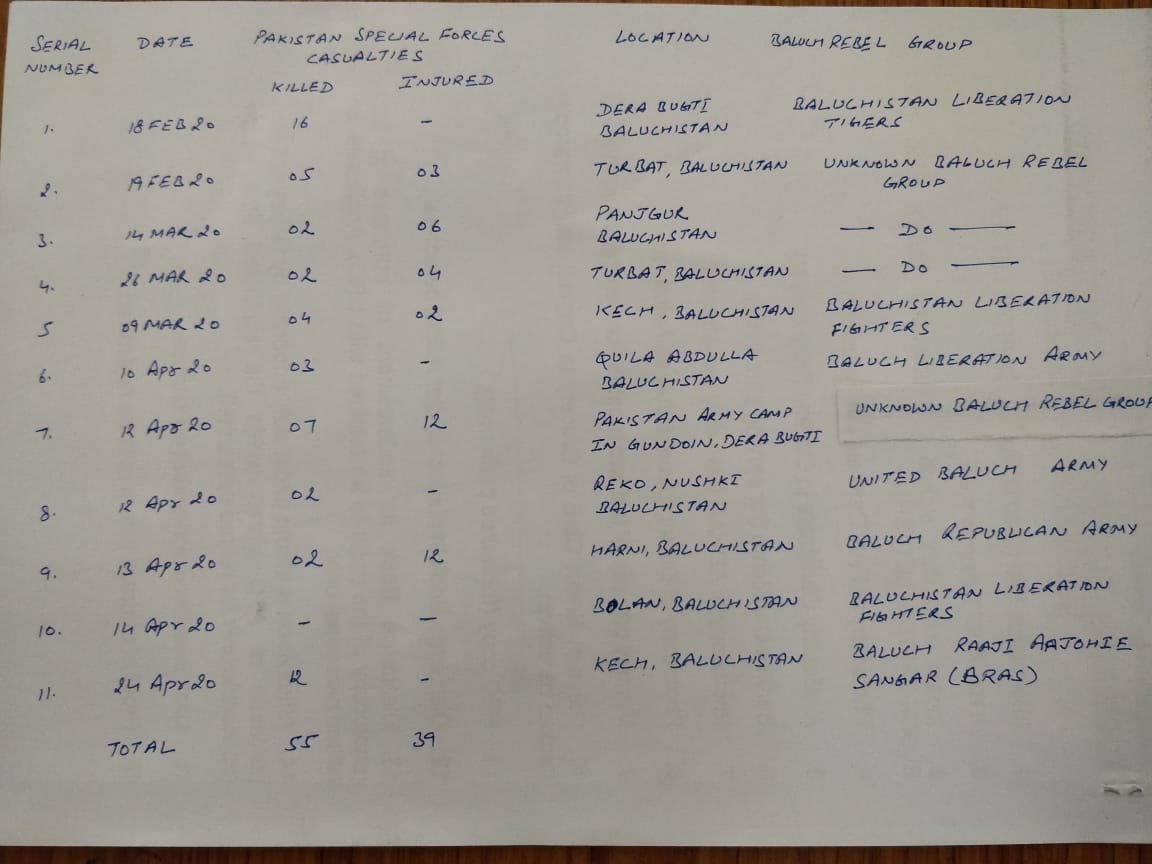 SERIAL NUMBER DATE PAKISTAN SPECIAL FORCES CASUALTIES LOCATION BALUCH REBEL GROUP
KILLED INJURED
1. 18 FEB 20 16 - DERA BUGTI BALUCHISTAN BALUCHISTAN LIBERATION TIGERS
2. 19 FEB 20 05 03 TURBAT, BALUCHISTAN UNKNOWN BALUCH REBEL GROUP
3. 14 MAR 20 02 06 PANJGUR BALUCHISTAN — DO —
4. 26 MAR 20 02 04 TURBAT, BALUCHISTAN — DO —
5 09 MAR 20 04 02 KECH, BALUCHISTAN BALUCHISTAN LIBERATION FIGHTERS
6. 10 Apr 20 03 - QUILA ABDULLA BALUCHISTAN BALUCH LIBERATION ARMY
7. 12 Apr 20 07 12 PAKISTAN ARMY CAMP IN GUNDOIN, DERA BUGTI UNKNOWN BALUCH REBEL GROUP
8. 12 Apr 20 02 - REKO, NUSHKI BALUCHISTAN UNITED BALUCH ARMY
9. 13 Apr 20 02 12 HARNI, BALUCHISTAN BALUCH REPUBLICAN ARMY
10. 14 Apr 20 - - BOLAN, BALUCHISTAN BALUCHISTAN LIBERATION FIGHTERS
11. 24 Apr 20 12 - KECH, BALUCHISTAN BALUCH RAAJI AAJOHIE SANGAR (BRAS)
TOTAL 55 39